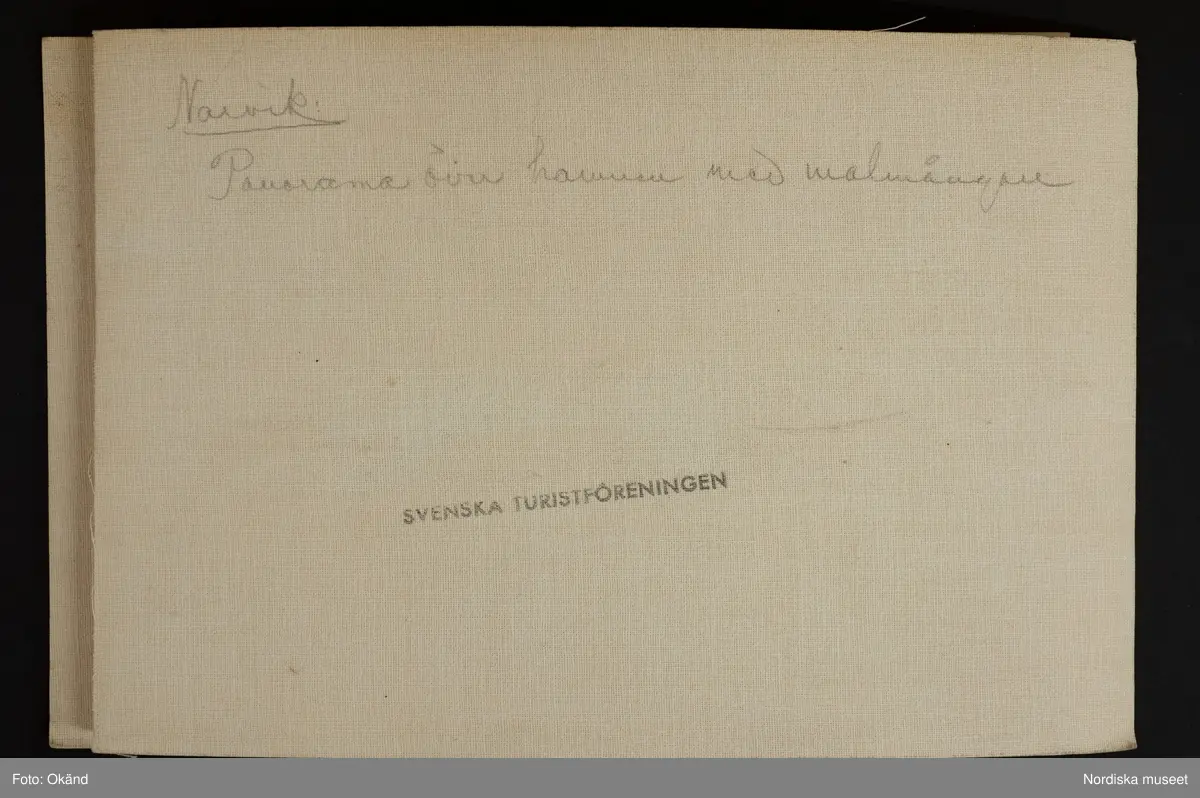 Narvik:
Panorama över hamnen med malmångare
SVENSKA TURISTFÖRENINGEN
Foto: Okänd
Nordiska museet